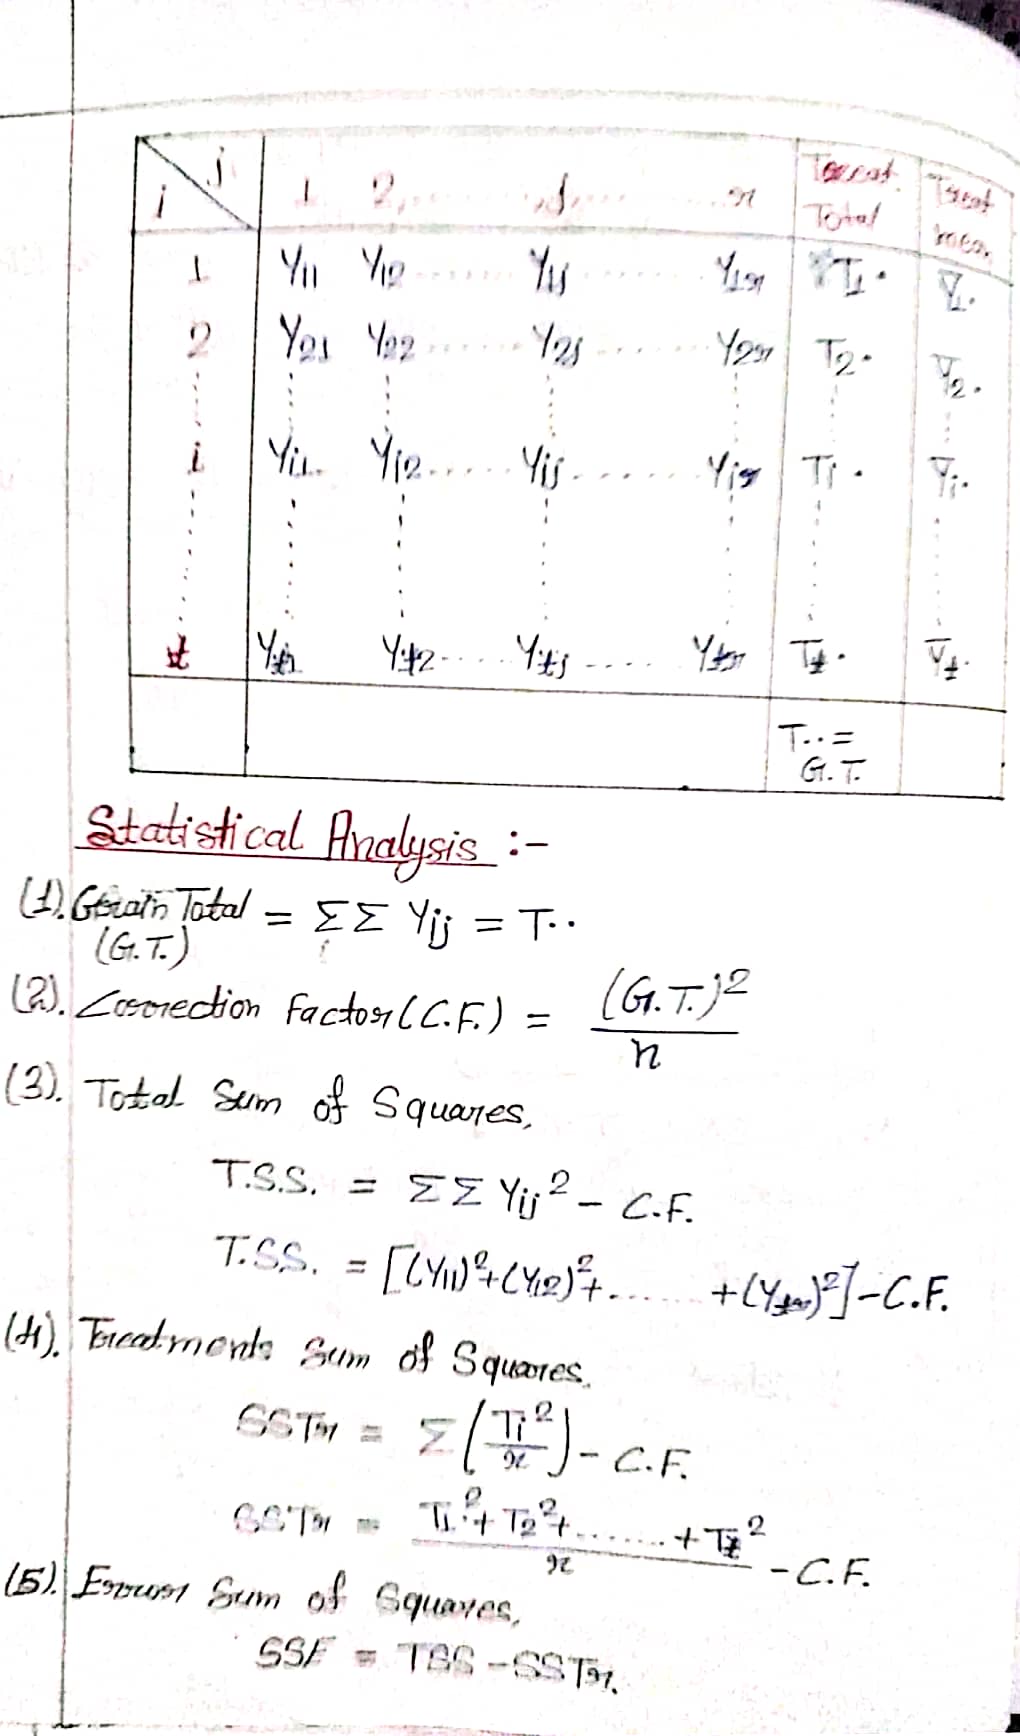 i j 1 2, ...... j, ...... r Treat. Total Treat mea.
1 Y11 Y12 ...... Y1j ...... Y1r T1. Ȳ1.
2 Y21 Y22 ...... Y2j ...... Y2r T2. Ȳ2.
i Yi1 Yi2 ...... Yij ...... Yir Ti. Ȳi.
t Yt1 Yt2 .... Ytj .... Ytr Tt. Ȳt.
T.. =
G.T.
Statistical Analysis :-
(1). Grain Total = ΣΣ Yij = T..
(G.T.) i
(2). Correction Factor (C.F.) = (G.T.)² / n
(3). Total Sum of Squares,
T.S.S. = ΣΣ Yij² - C.F.
T.S.S. = [(Y11)²+(Y12)²+....... +(Ytr)²]-C.F.
(4). Treatments Sum of Squares,
SSTr = Σ(Ti²/r) - C.F.
SSTr = T1.²+T2²+.......+Tt² / r - C.F.
(5). Error Sum of Squares,
SSE = TSS - SSTr.